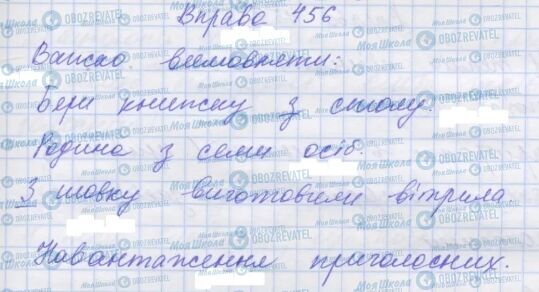 Вправа 456
Важко вимовляти:
Бери книжку з столу.
Родина з семи осіб.
З шовку виготовили вітрила
Навантаження приголосних.